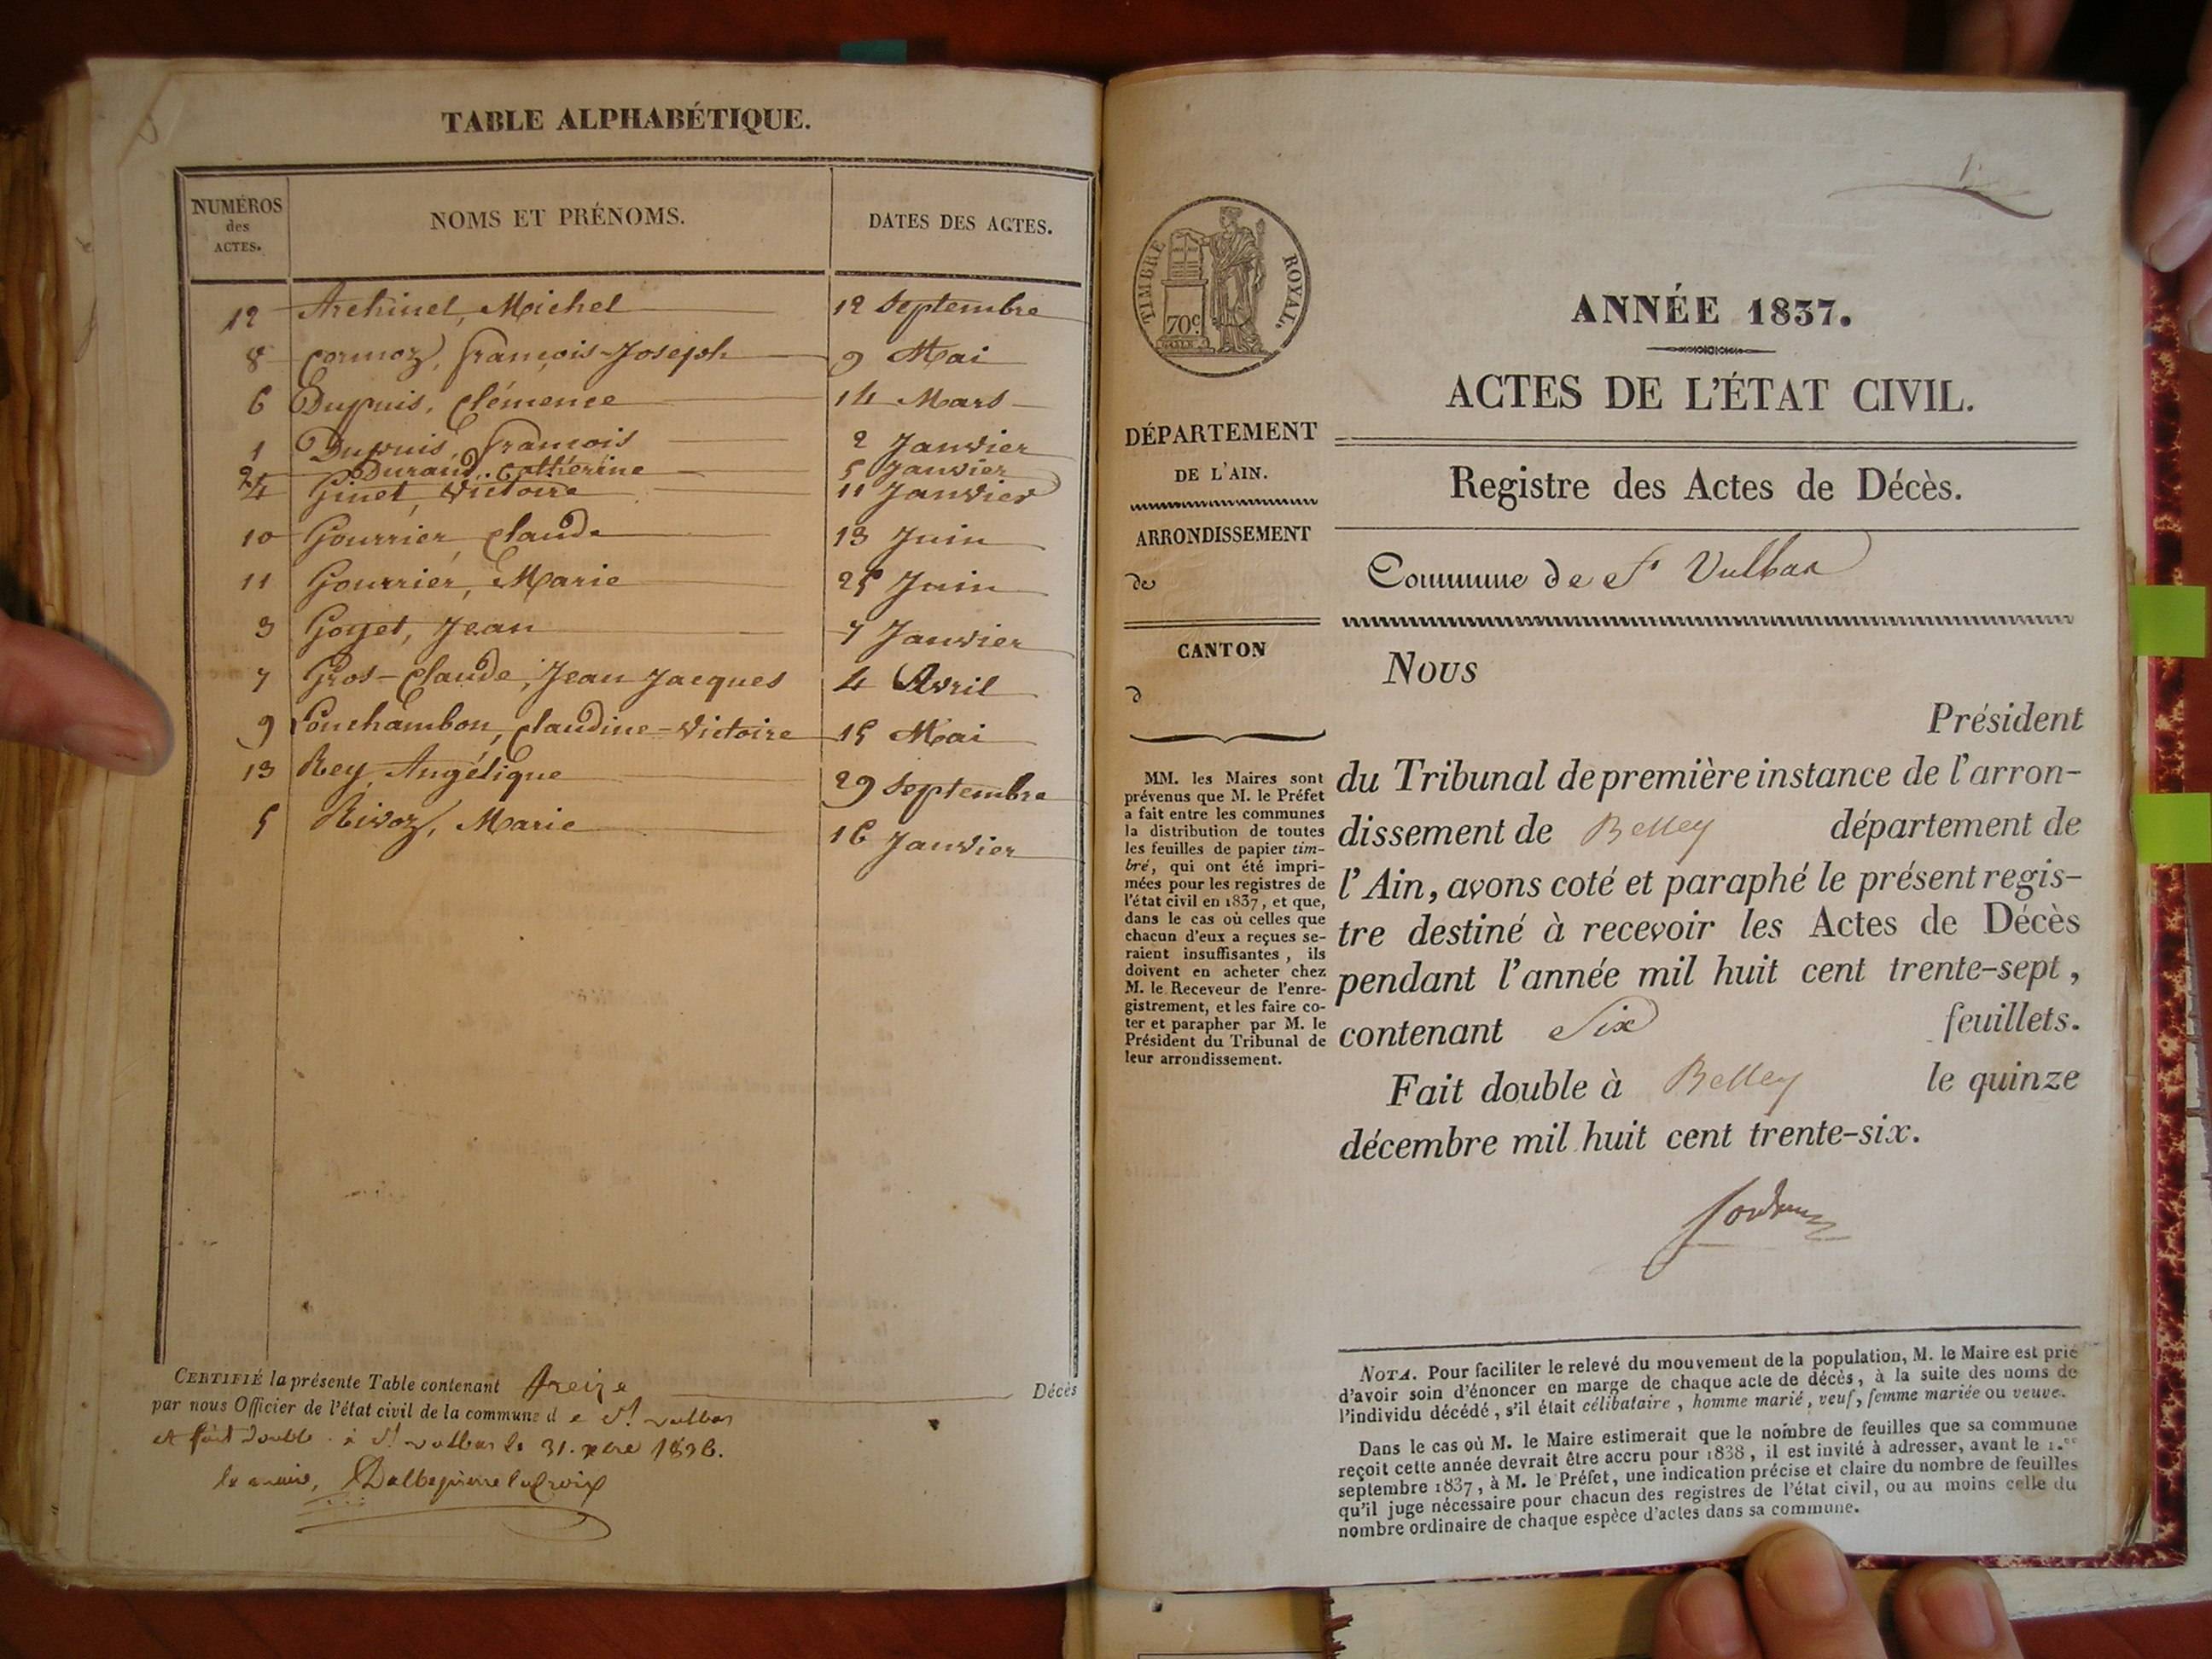 TABLE ALPHABÉTIQUE.
NUMÉROS des ACTES. NOMS ET PRÉNOMS. DATES DES ACTES.
12 Archinet, Michel 12 Septembre
8 Cormoz, françois-Joseph 9 Mai
6 Dupuis, Clémence 14 Mars
1 Dupuis, françois 2 Janvier
2 Durand, Catherine 5 Janvier
4 Ginet, Victoire 11 Janvier
10 Gourrier, Claude 13 Juin
11 Gourrier, Marie 25 Juin
3 Goyet, Jean 7 Janvier
7 Gros-Claude, Jean Jacques 4 Avril
9 Ponchambon, Claudine-Victoire 15 Mai
13 Rey, Angélique 29 Septembre
5 Rivoz, Marie 16 Janvier
CERTIFIÉ la présente Table contenant treize Décès
par nous Officier de l'état civil de la commune de St. vulbas
et fait double à St vulbas le 31. xbre 1836.
le maire,
1
TIMBRE ROYAL.
70c.
DÉPARTEMENT
DE L'AIN.
ARRONDISSEMENT
de
CANTON
d
MM. les Maires sont
prévenus que M. le Préfet
a fait entre les communes
la distribution de toutes
les feuilles de papier tim-
bré, qui ont été impri-
mées pour les registres de
l'état civil en 1837, et que,
dans le cas où celles que
chacun d'eux a reçues se-
raient insuffisantes, ils
doivent en acheter chez
M. le Receveur de l'enre-
gistrement, et les faire co-
ter et parapher par M. le
Président du Tribunal de
leur arrondissement.
ANNÉE 1837.
ACTES DE L'ÉTAT CIVIL.
Registre des Actes de Décès.
Commune de St Vulbas
Nous
Président
du Tribunal de première instance de l'arron-
dissement de Belley département de
l'Ain, avons coté et paraphé le présent regis-
tre destiné à recevoir les Actes de Décès
pendant l'année mil huit cent trente-sept,
contenant Six feuillets.
Fait double à Belley le quinze
décembre mil huit cent trente-six.
NOTA. Pour faciliter le relevé du mouvement de la population, M. le Maire est prié
d'avoir soin d'énoncer en marge de chaque acte de décès, à la suite des noms de
l'individu décédé, s'il était célibataire, homme marié, veuf, femme mariée ou veuve.
Dans le cas où M. le Maire estimerait que le nombre de feuilles que sa commune
reçoit cette année devrait être accru pour 1838, il est invité à adresser, avant le 1.er
septembre 1837, à M. le Préfet, une indication précise et claire du nombre de feuilles
qu'il juge nécessaire pour chacun des registres de l'état civil, ou au moins celle du
nombre ordinaire de chaque espèce d'actes dans sa commune.